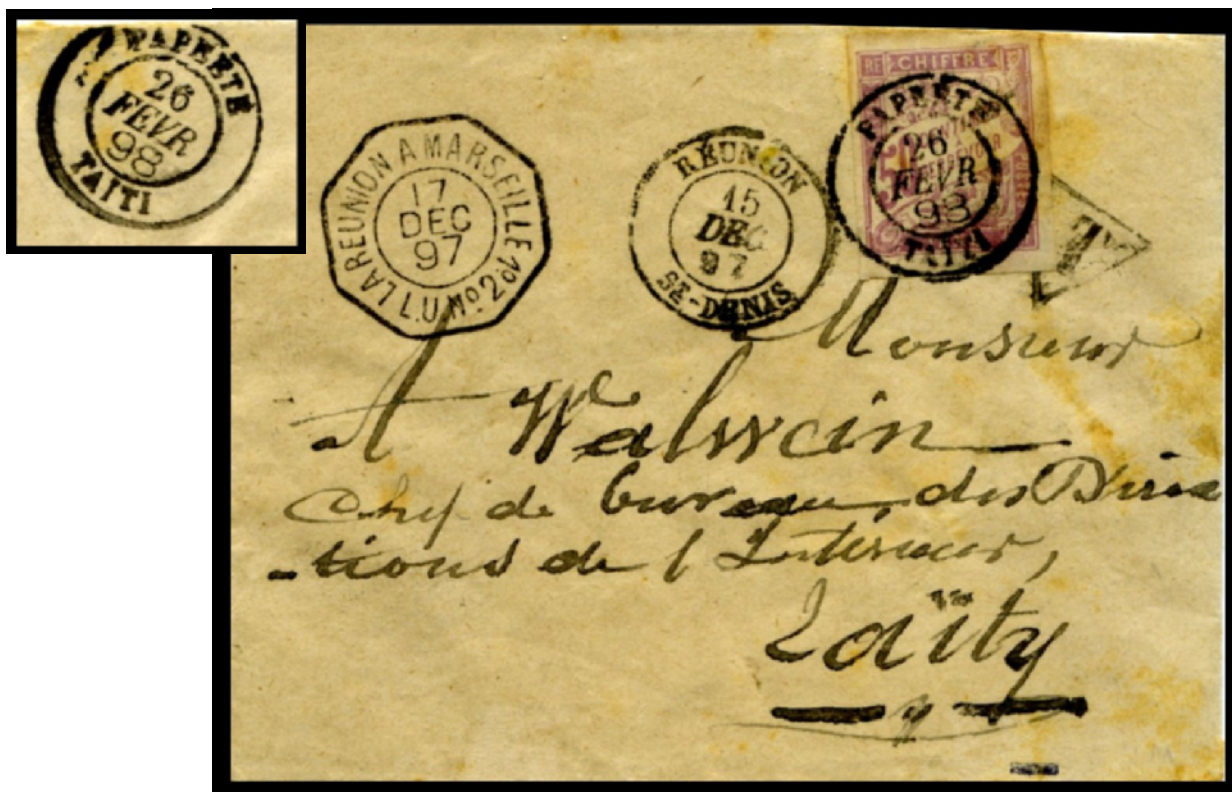 PAPEETE
26
FEVR
98
TAITI
LA REUNION A MARSEILLE
17
DEC
97
L.U. No 2
REUNION
15
DEC
97
St-DENIS
RE CHIFFRE
PAPEETE
26
FEVR
98
TAITI
Monsieur
A Walsvein
Chef de bureau des Direc
-tions de l'Intérieur,
Taïty